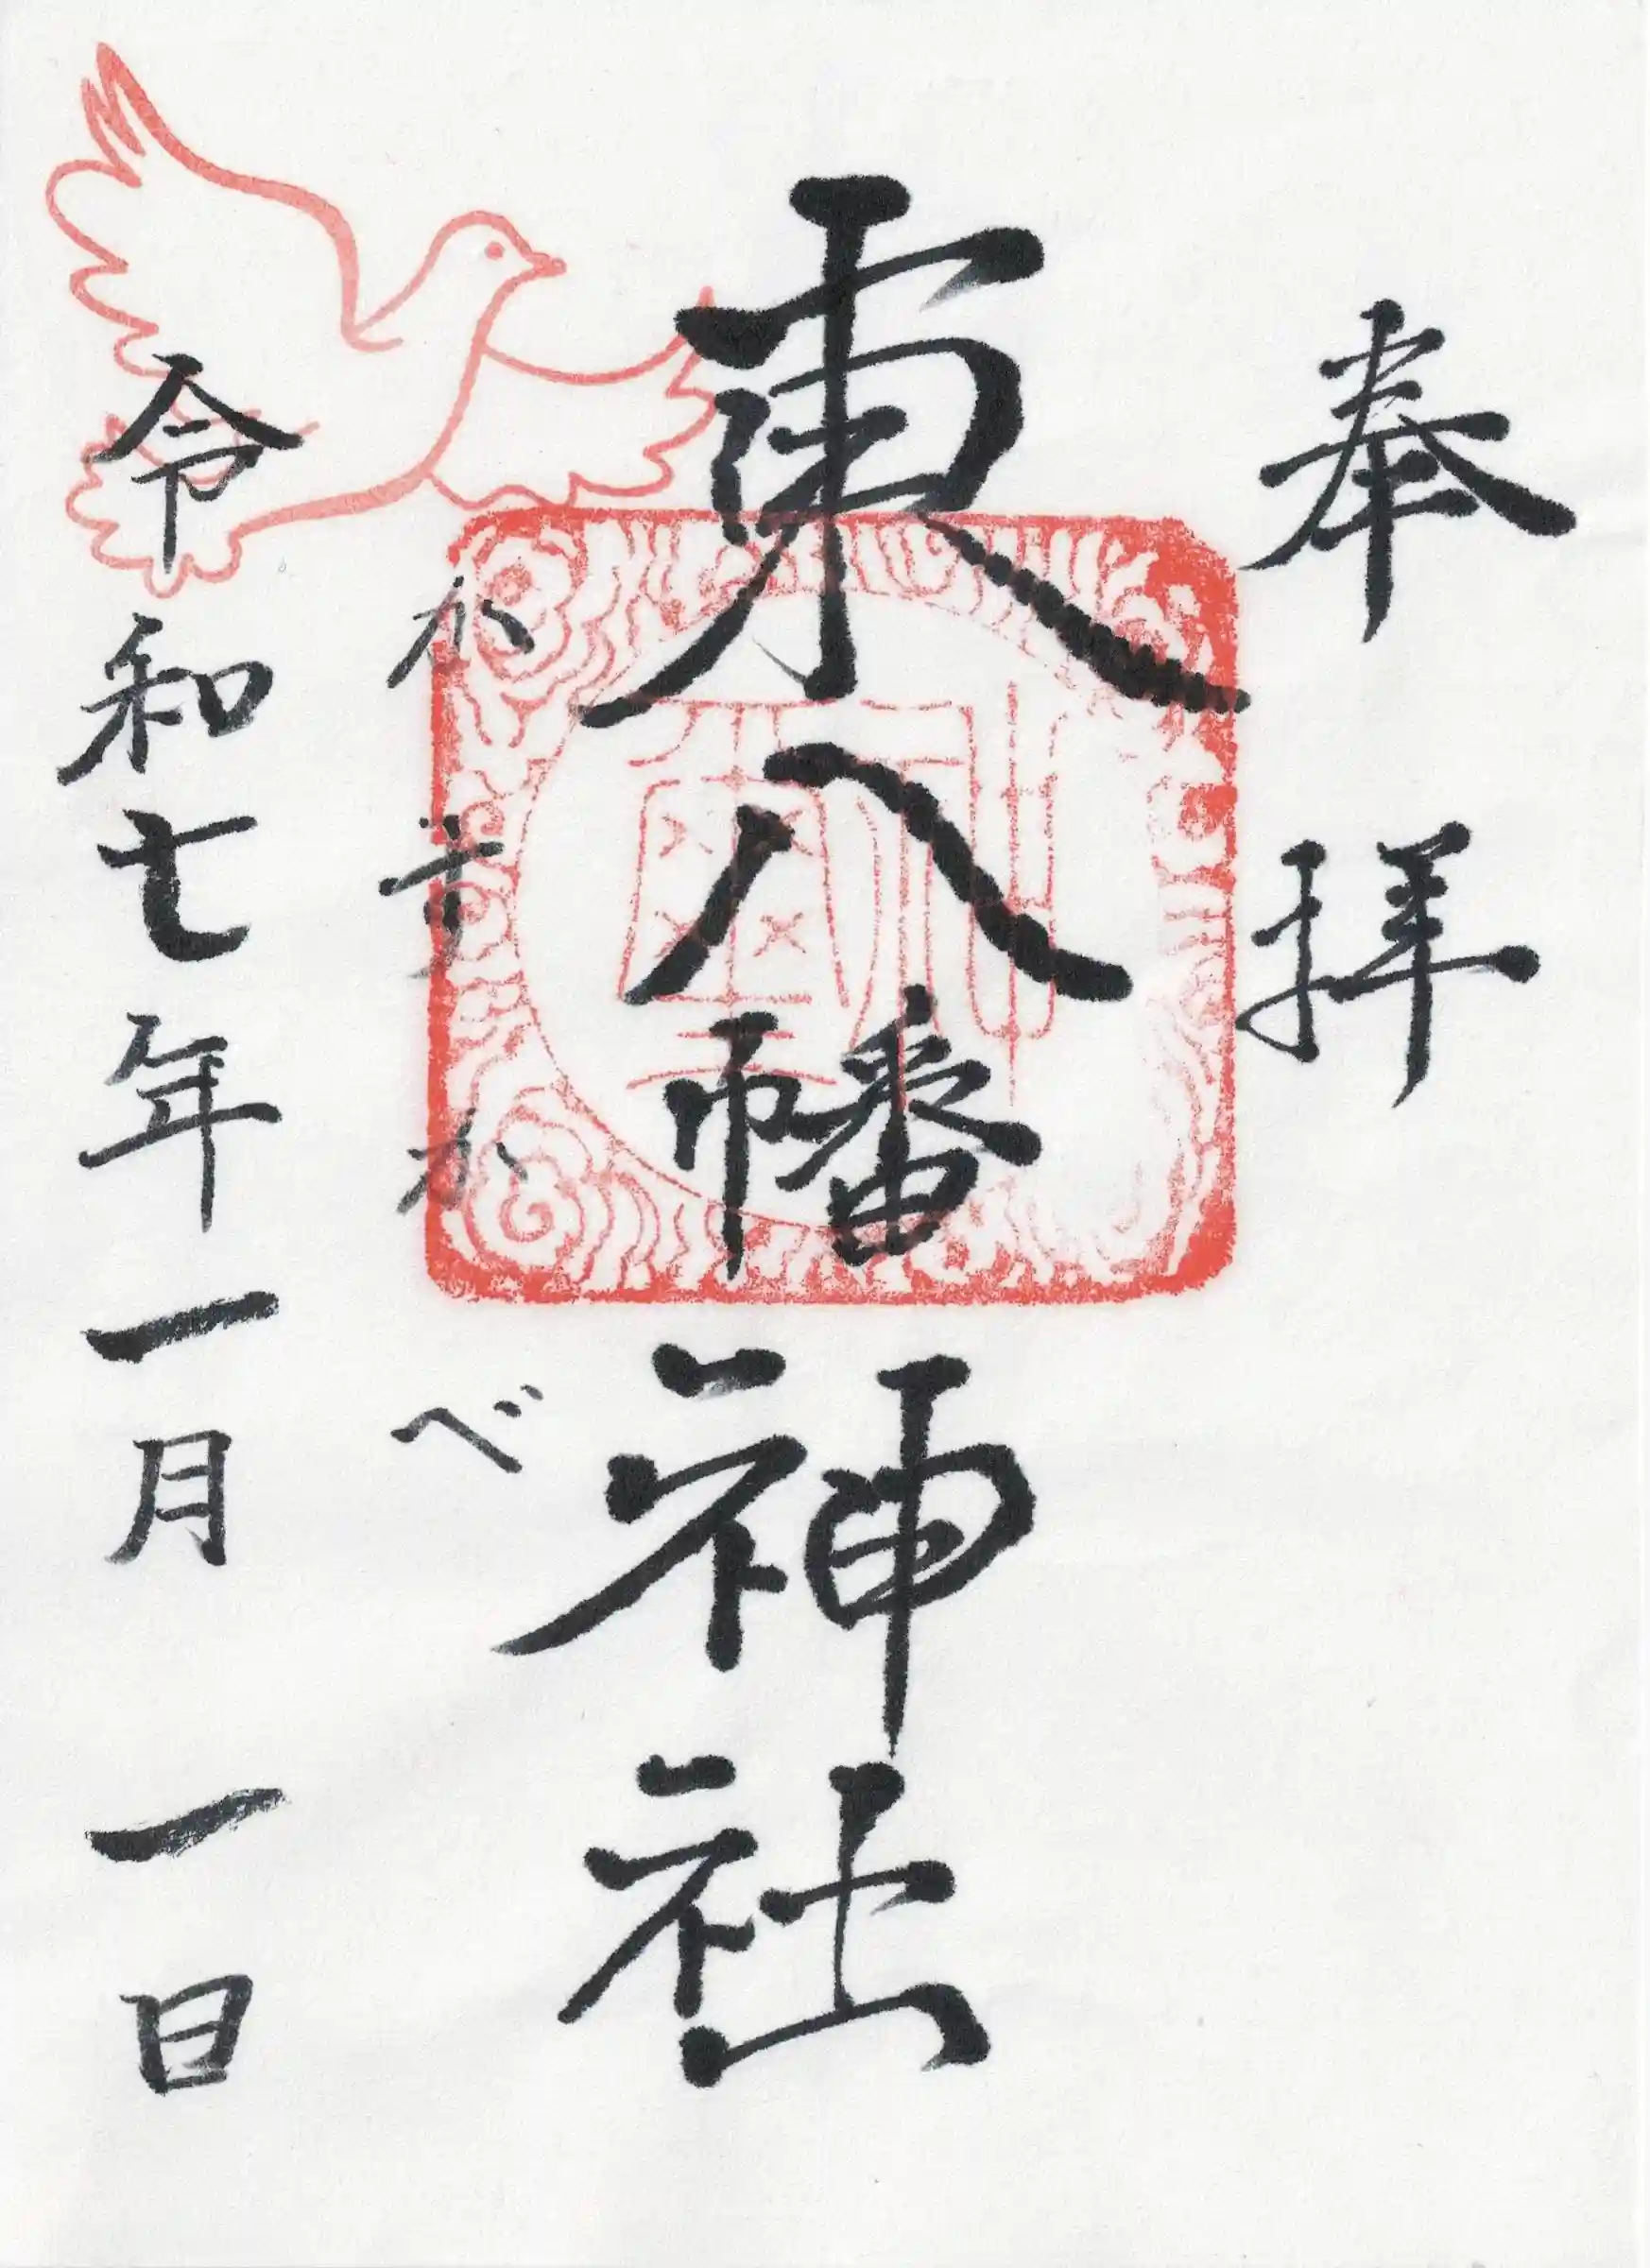 奉拝
東八幡神社
神璽
かすかべ
令和七年一月一日